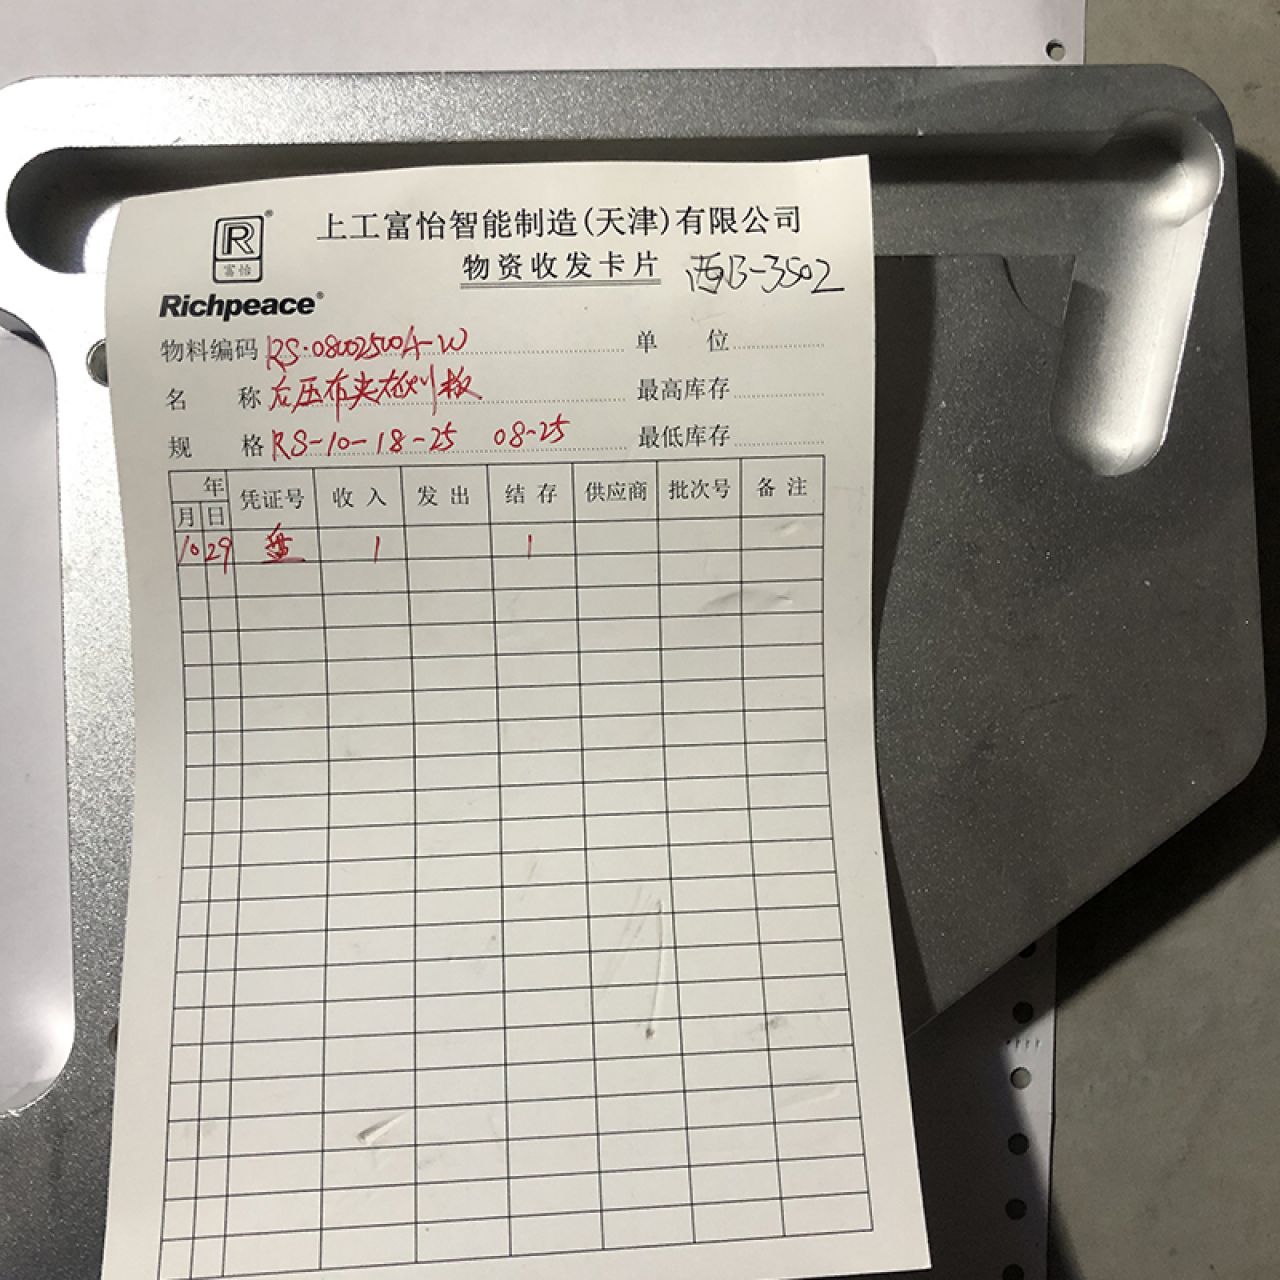 R®
富怡
Richpeace®
上工富怡智能制造(天津)有限公司
物资收发卡片 西B-3502
物料编码 RS.0802500A-W 单 位
名 称 左压布夹右侧板 最高库存
规 格 RS-10-18-25 08-25 最低库存
年 凭证号 收入 发出 结存 供应商 批次号 备注
月 日
10 29 盘 1 1